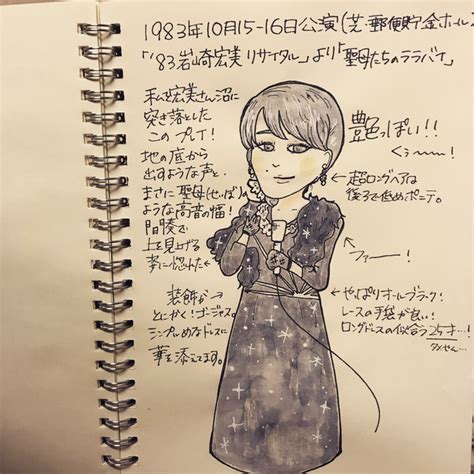 1983年10月15-16日公演(芝・郵便貯金ホール)
「'83 岩崎宏美リサイタル」より「聖母たちのララバイ」
私を宏美さん沼に
突き落とした
このプレイ!
地の底から
出すような声と、
まさに聖母(せいぼ)の
ような高音の幅!
間奏で
上を見上げる
姿に惚れた
艶っぽい!!
くぅ〜ー!
超ロングヘアは
後ろで低めポニテ。
ファー!
装飾が
とにかく!ゴージャス。
シンプルめなドレスに
華を添えてます。
やっぱりオールブラック!
レースの手袋が良い!
ロングドレスの似合う25才…!